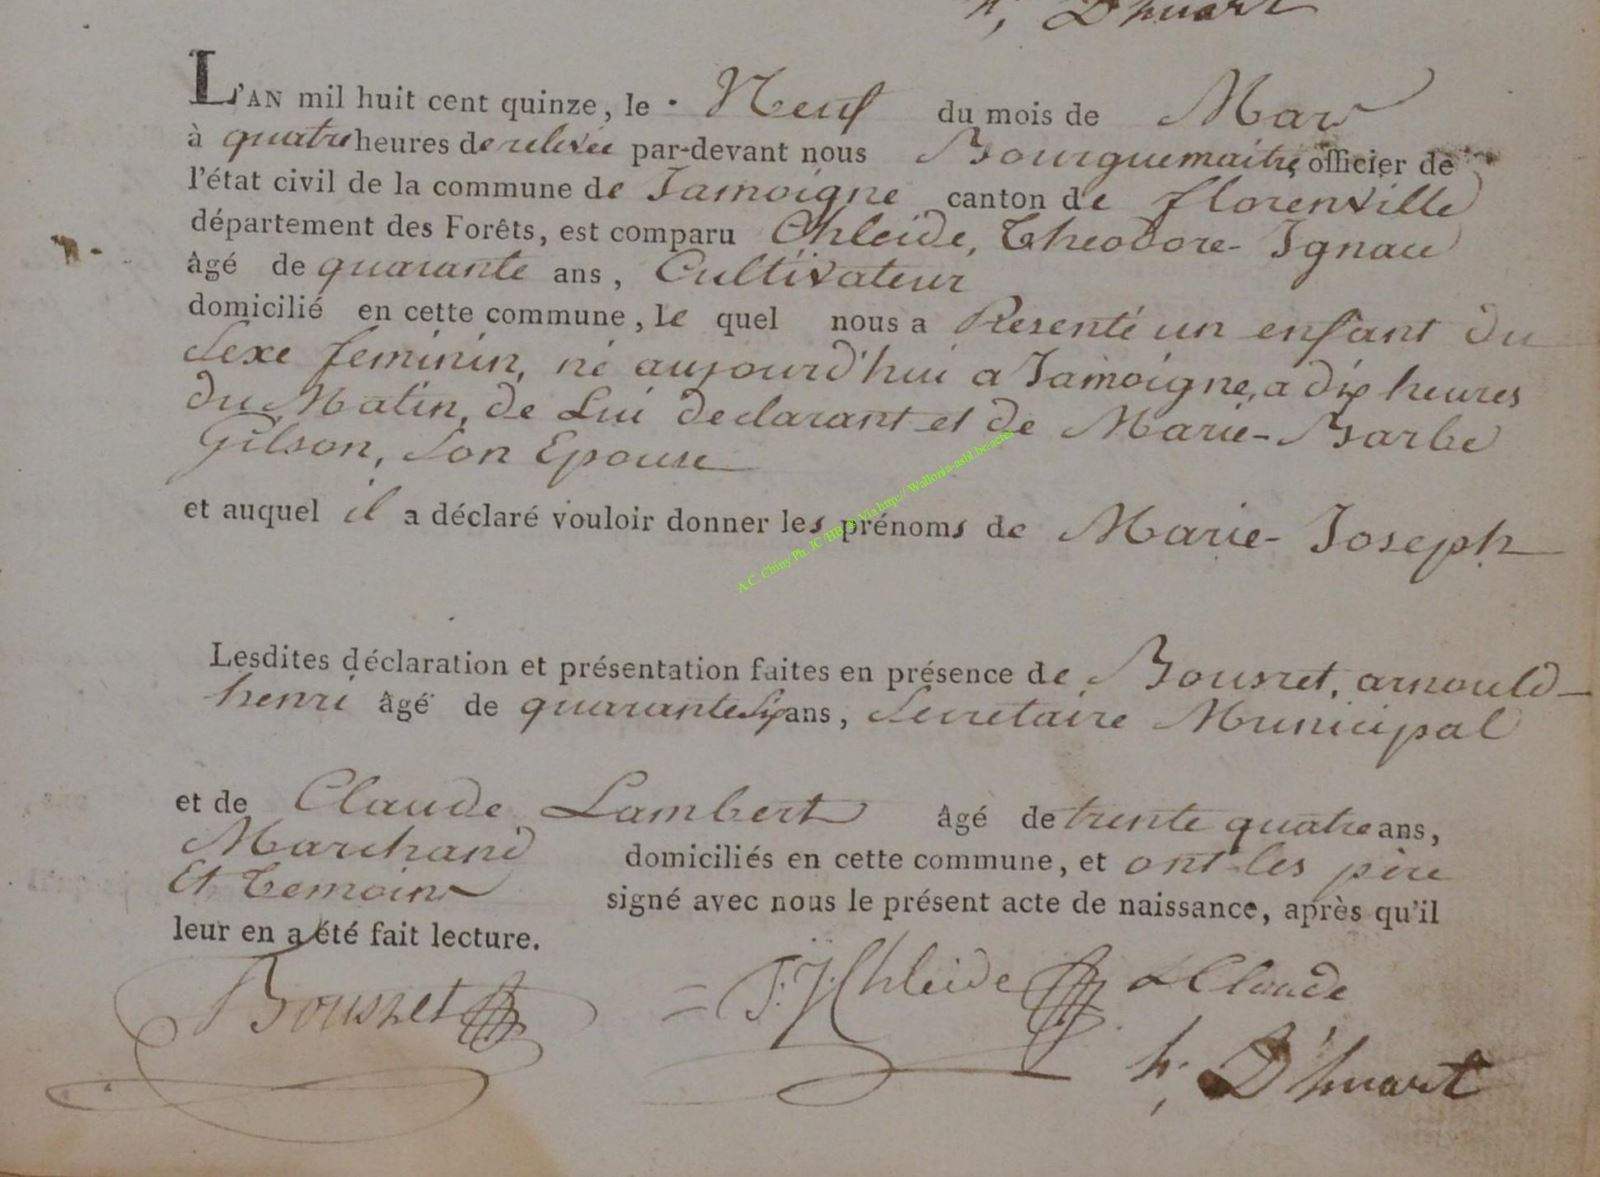 h, D'huart
L'AN mil huit cent quinze, le Neuf du mois de Mars
à quatre heures de relevée par-devant nous Bourguemaitre officier de
l'état civil de la commune de Jamoigne canton de florenville
département des Forêts, est comparu Chleide, Theodore-Ignace
âgé de quarante ans, Cultivateur
domicilié en cette commune, le quel nous a Presenté un enfant du
Sexe feminin, né aujourd'hui a Jamoigne, a dix heures
du Matin, de Lui declarant et de Marie-Barbe
Gilson, Son Epouse
et auquel il a déclaré vouloir donner les prénoms de Marie-Joseph
Lesdites déclaration et présentation faites en présence de Bousret, arnould-
henri âgé de quarante Six ans, Secretaire Municipal
et de Claude Lambert âgé de trente quatre ans,
Marchand domiciliés en cette commune, et ont les père
Et temoins signé avec nous le présent acte de naissance, après qu'il
leur en a été fait lecture.
Bousret = T. J. Chleide L Claude
h, D'huart